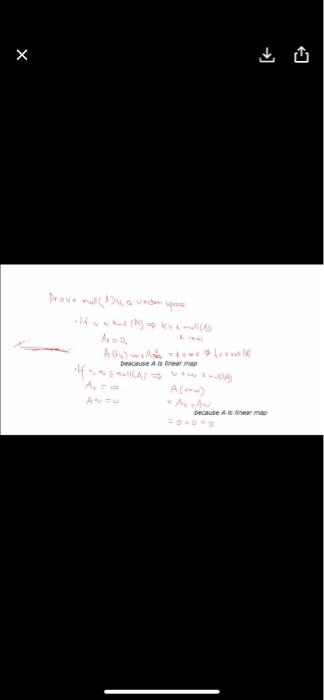 Prove null(A) is a vector space
· If v ∈ null(A) ⇒ kv ∈ null(A)
Av = 0,
A(kv) = = k · 0 = 0 ⇒ kv ∈ null(A)
beacause A is linear map
· If v, w ∈ null(A) ⇒ v + w ∈ null(A)
Av = 0 A(v+w)
Aw = 0 = Av + Aw
because A is linear map
= 0 + 0 = 0